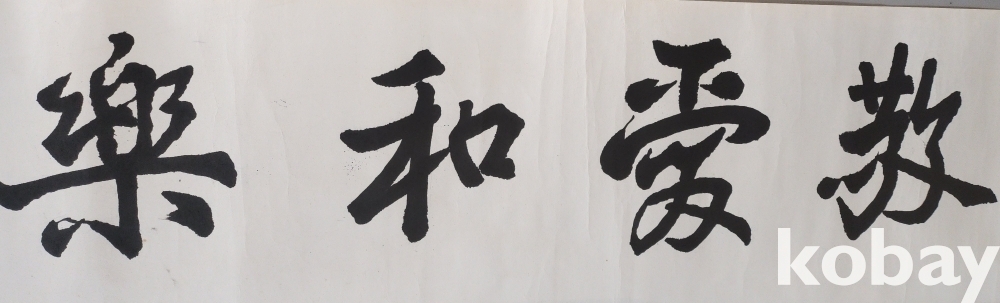 敬愛和樂
kobay